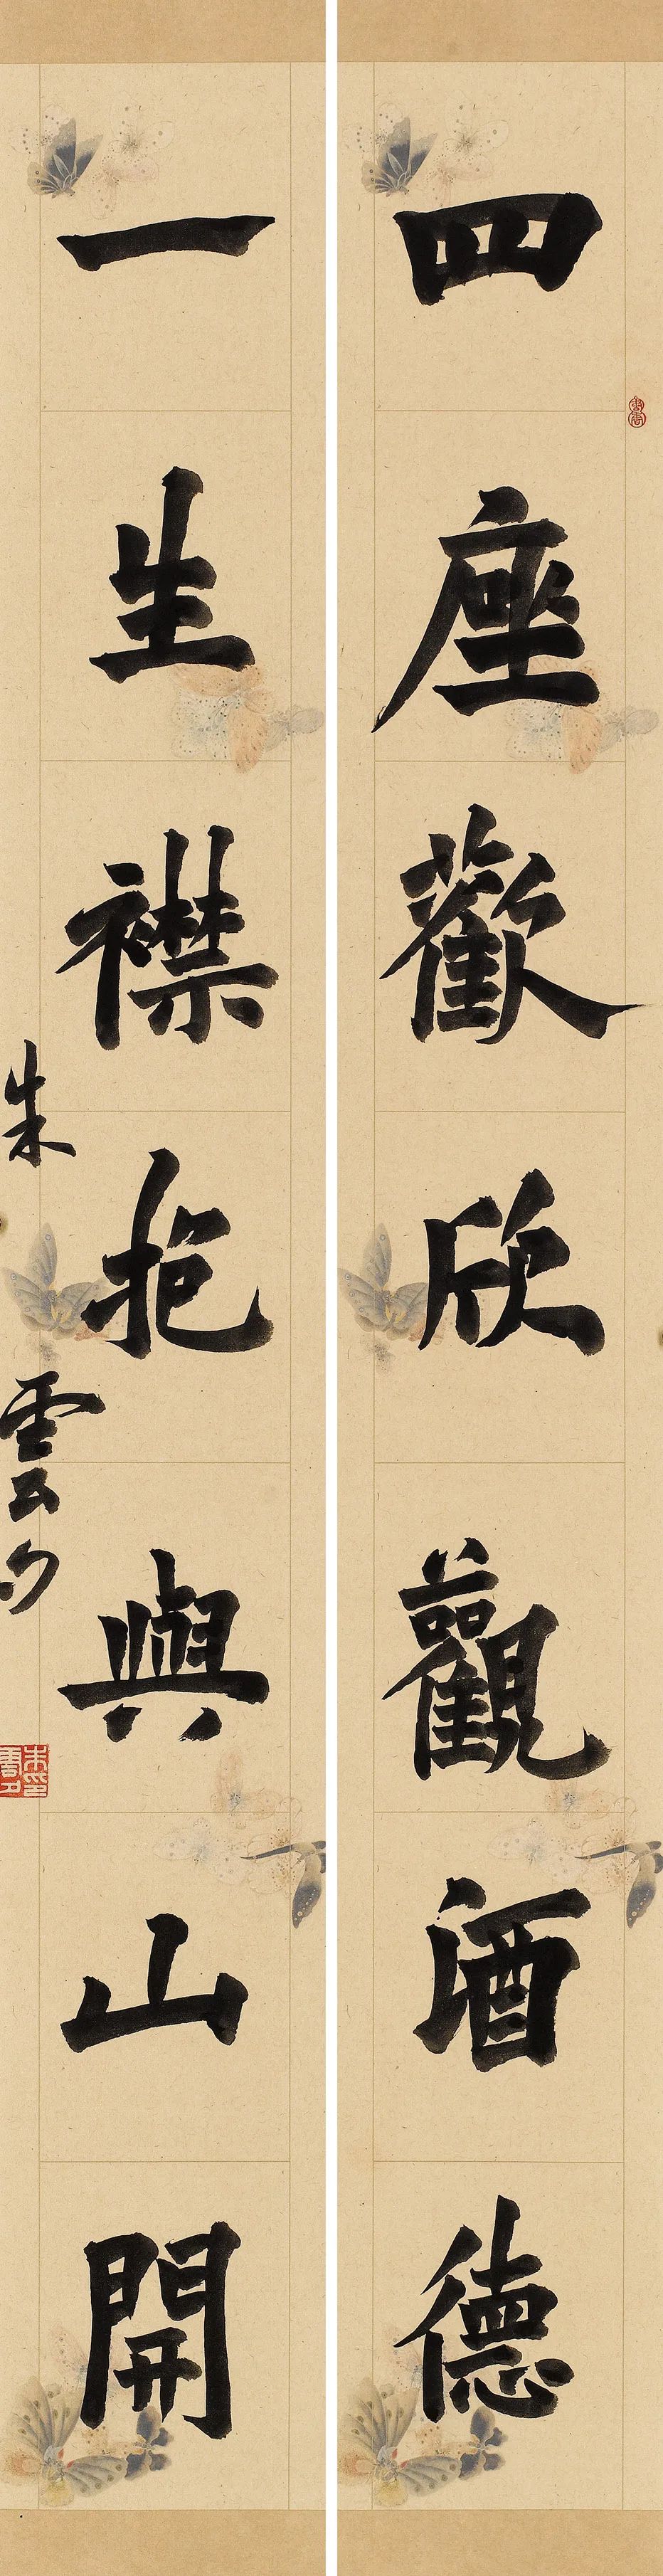 四座歡欣觀酒德
一生襟抱與山開
朱雲